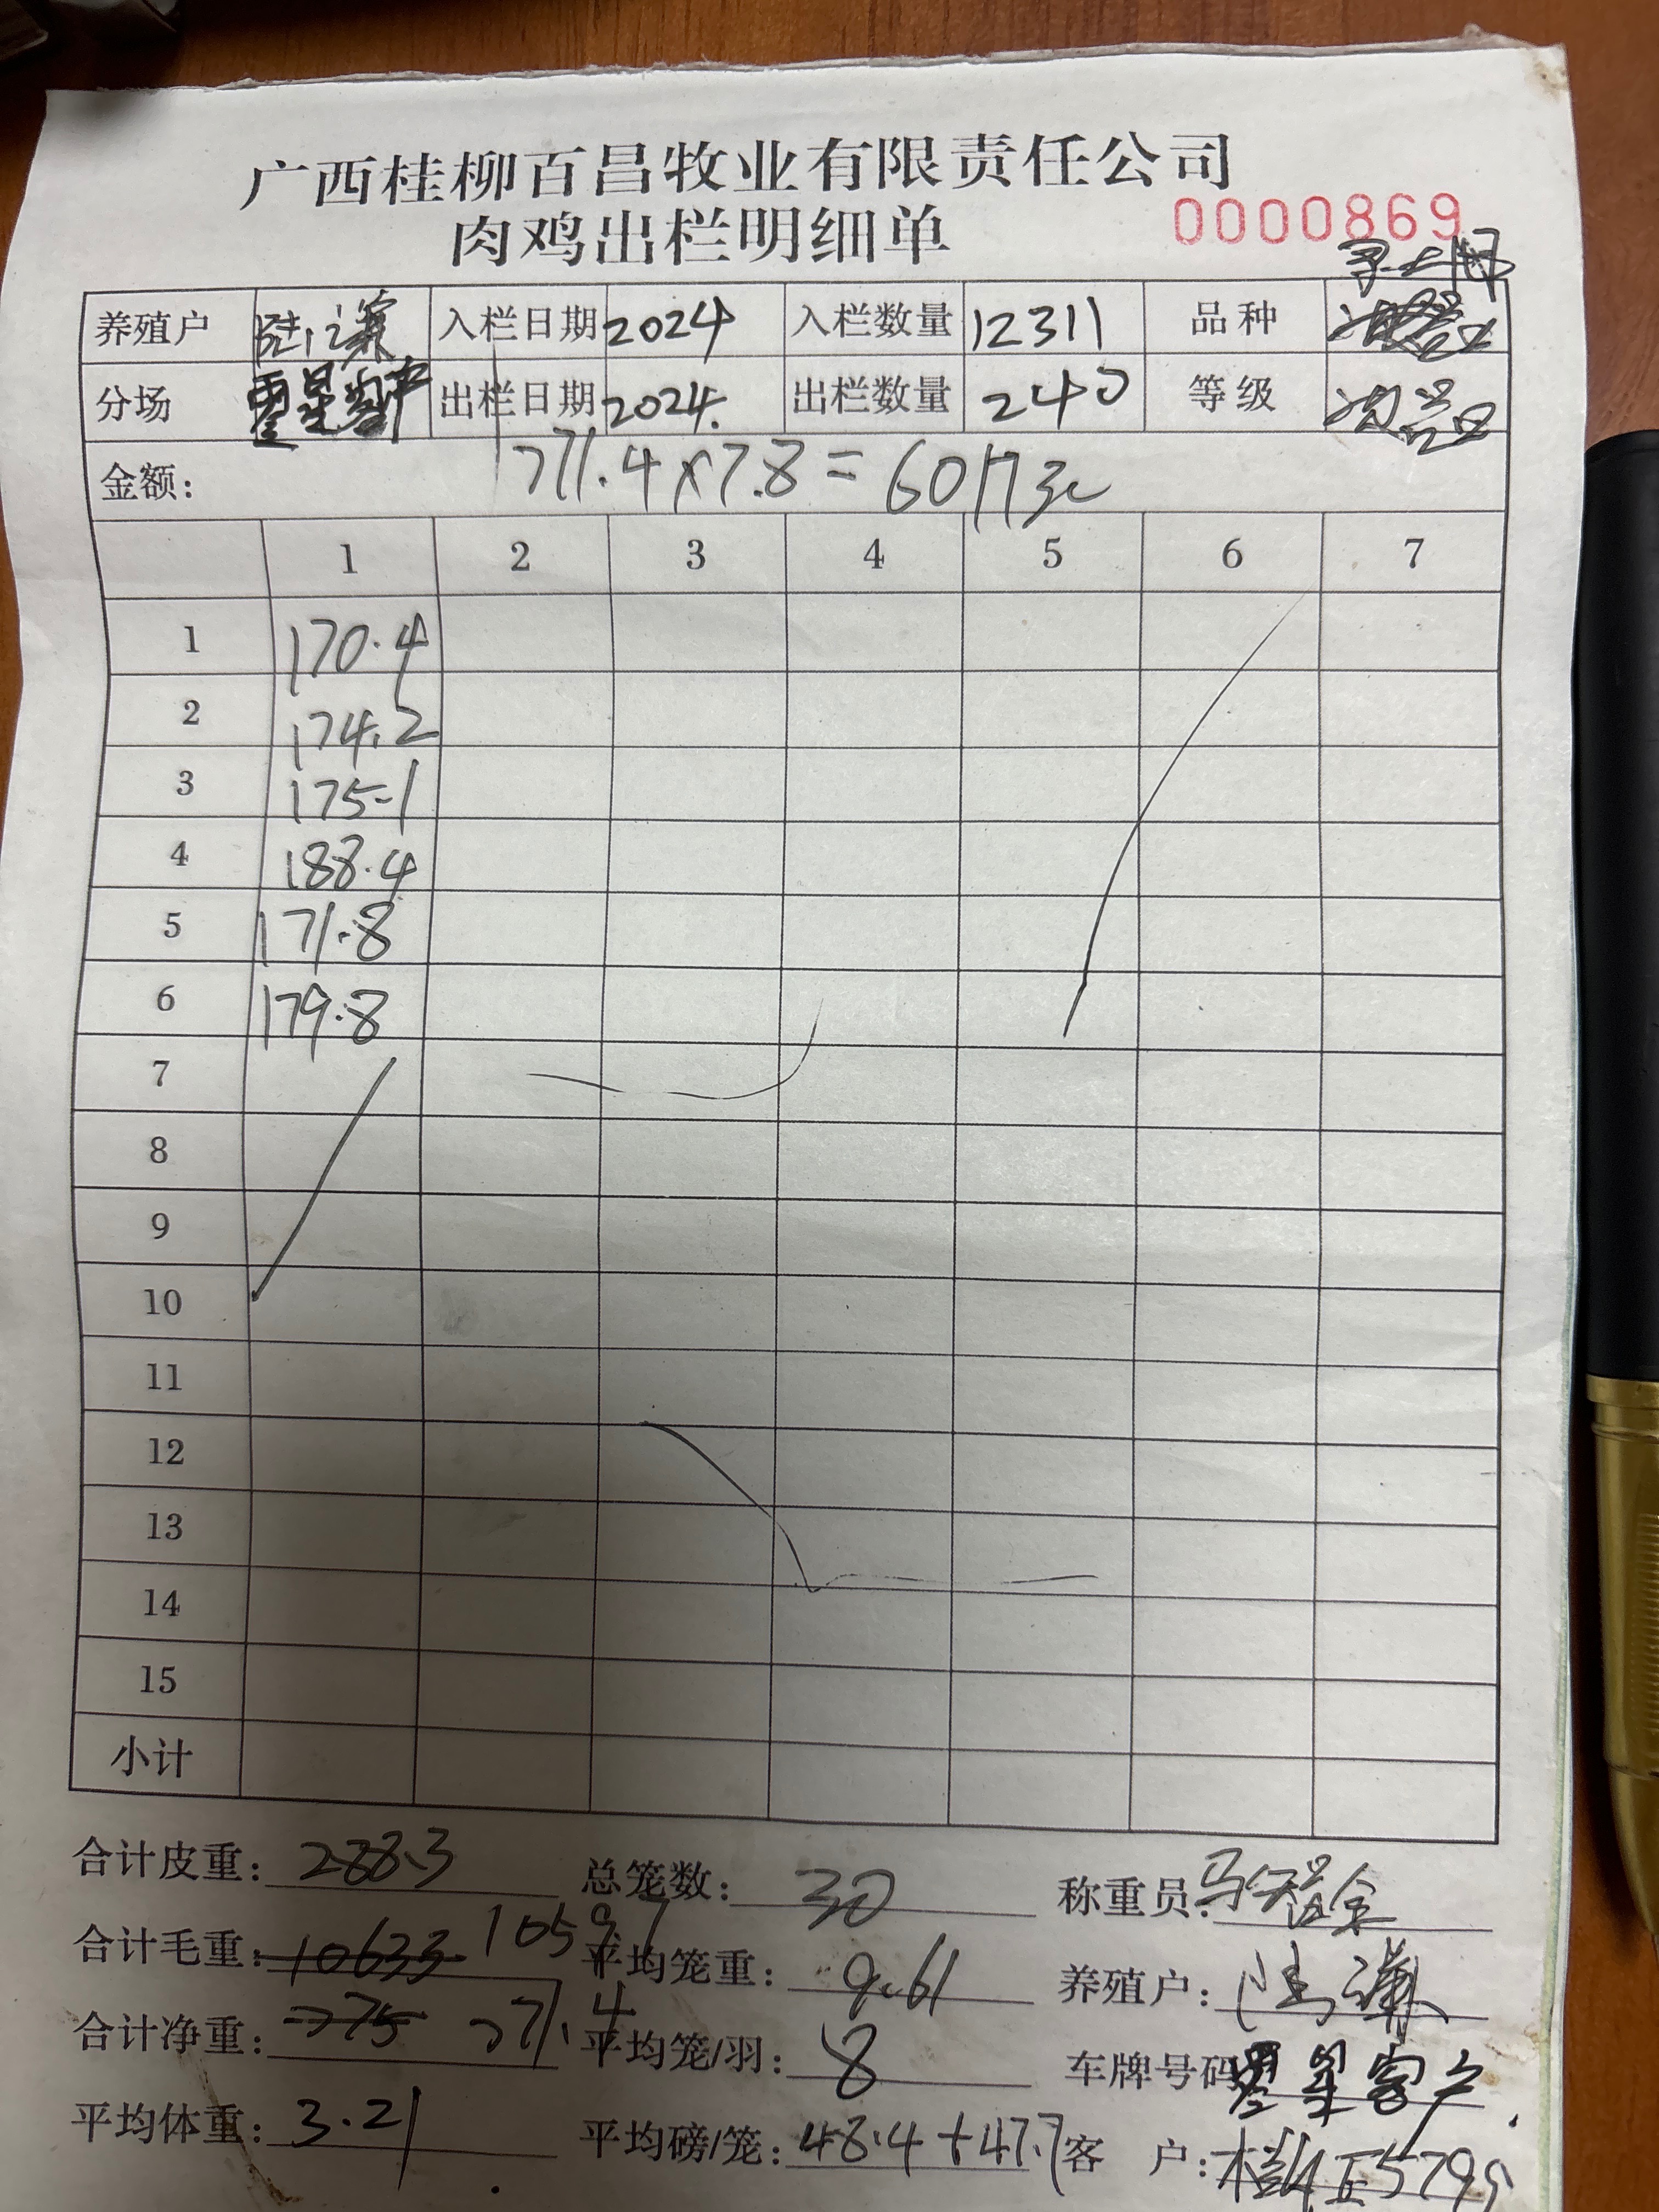 广西桂柳百昌牧业有限责任公司
肉鸡出栏明细单
0000869
养殖户 入栏日期 2024 入栏数量 12311 品种
分场 出栏日期 2024. 出栏数量 240 等级
金额: 771.4×7.8=6017元
1 2 3 4 5 6 7
1 170.4
2 174.2
3 175.1
4 188.4
5 171.8
6 179.8
7
8
9
10
11
12
13
14
15
小计
合计皮重: 288.3 总笼数: 30 称重员:
合计毛重: 10633 1059.7 平均笼重: 9.61 养殖户:
合计净重: 775 771.4 平均笼/羽: 8 车牌号码 客户
平均体重: 3.21 平均磅/笼: 48.4+47.7 客 户: